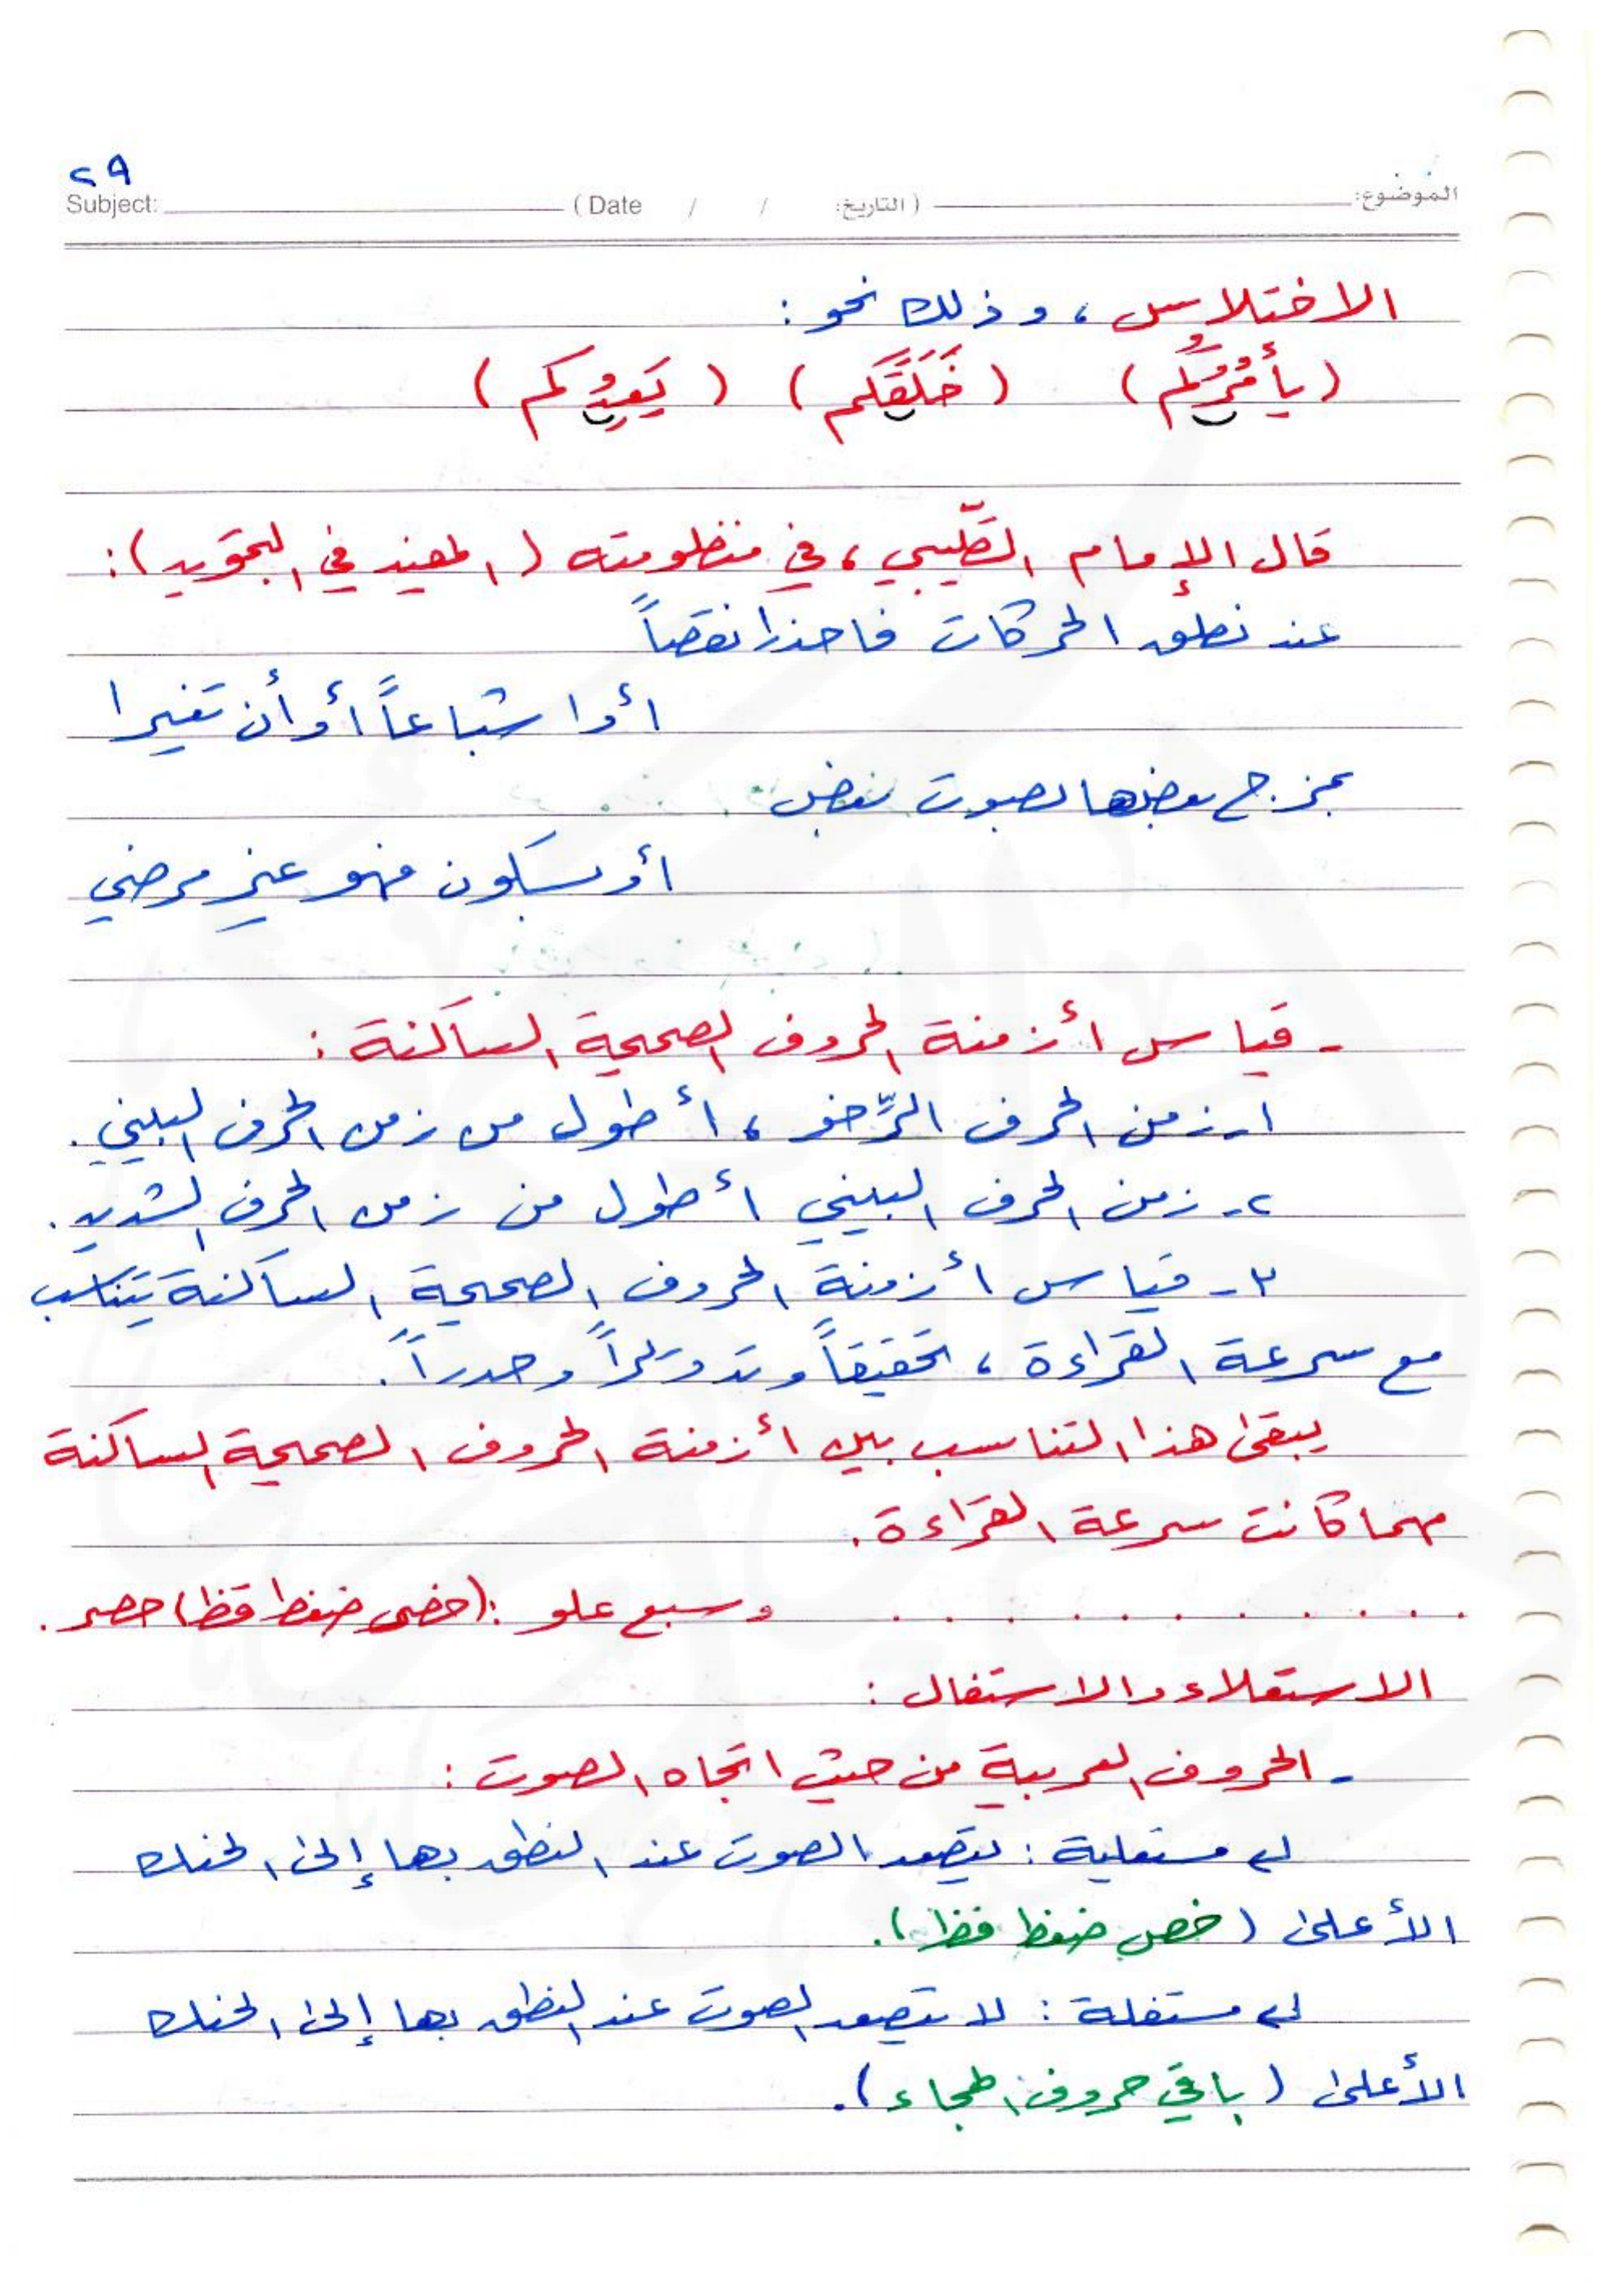 ٢٩
Subject: ( Date / / التاريخ: ) الموضوع:
الاختلاس، وذلك نحو:
(يأمُرُكُم) (خَلَقَكم) (يَعِدُكم)
قال الإمام الطِّيبي، في منظومته (المفيد في التجويد):
عند نطق الحركات فاحذرا نقصاً
أو إشباعاً أو أن تغيرا
بمزج بعضها بصوت بعض
أو بسكون فهو غير مرضي
- قياس أزمنة الحروف الصحيحة الساكنة:
١- زمن الحرف الرِّخو، أطول من زمن الحرف البيني.
٢- زمن الحرف البيني أطول من زمن الحرف الشديد.
٣- قياس أزمنة الحروف الصحيحة الساكنة يتناسب
مع سرعة القراءة، تحقيقاً وتدويراً وحدراً.
يبقى هذا التناسب بين أزمنة الحروف الصحيحة الساكنة
مهما كانت سرعة القراءة.
. . . . . . . . . . . وسبع علو: (خص ضغط قظ) حصر.
الاستعلاء والاستفال:
- الحروف العربية من حيث اتجاه الصوت:
مستعلية: يتصعد الصوت عند النطق بها إلى الحنك
الأعلى (خص ضغط قظ).
مستفلة: لا يتصعد الصوت عند النطق بها إلى الحنك
الأعلى (باقي حروف الهجاء).